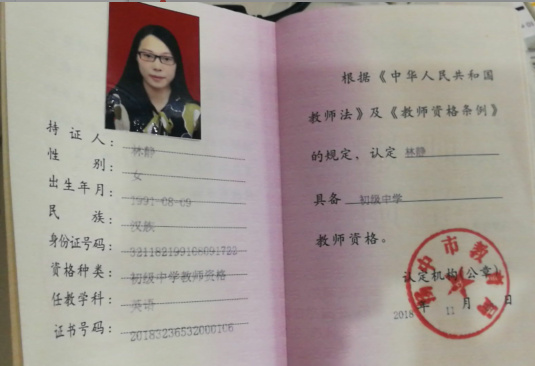 持证人： 林静
性别： 女
出生年月： 1991-08-09
民族： 汉族
身份证号码：
资格种类： 初级中学教师资格
任教学科： 英语
证书号码： 20183236532000106
根据《中华人民共和国
教师法》及《教师资格条例》
的规定，认定 林静
具备 初级中学
教师资格。
认定机构（公章）
2018 年 11 月 日
中市教育局